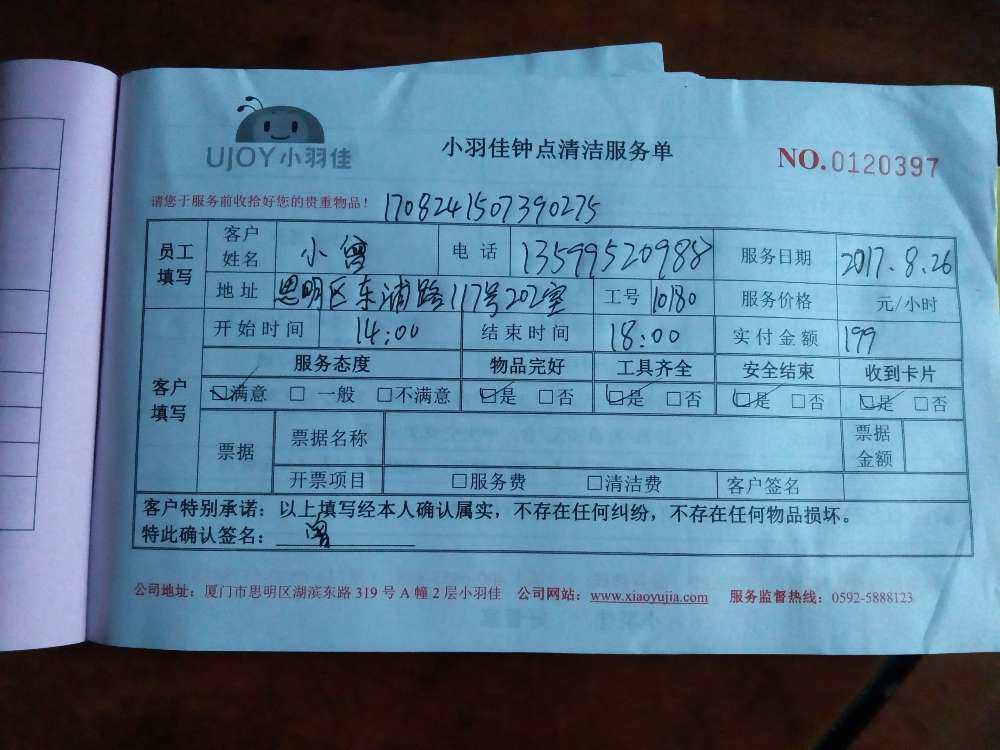 UJOY小羽佳
小羽佳钟点清洁服务单
NO.0120397
请您于服务前收拾好您的贵重物品! 1708241507390275
员工填写 客户姓名 小曾 电话 13599520988 服务日期 2017.8.26
地址 思明区东浦路117号202室 工号 10180 服务价格 元/小时
客户填写 开始时间 14:00 结束时间 18:00 实付金额 199
服务态度 物品完好 工具齐全 安全结束 收到卡片
☑满意 □一般 □不满意 ☑是 □否 ☑是 □否 ☑是 □否 ☑是 □否
票据 票据名称 票据金额
开票项目 □服务费 □清洁费 客户签名
客户特别承诺:以上填写经本人确认属实,不存在任何纠纷,不存在任何物品损坏。
特此确认签名: 曾
公司地址:厦门市思明区湖滨东路 319 号 A 幢 2 层小羽佳 公司网站:www.xiaoyujia.com 服务监督热线:0592-5888123